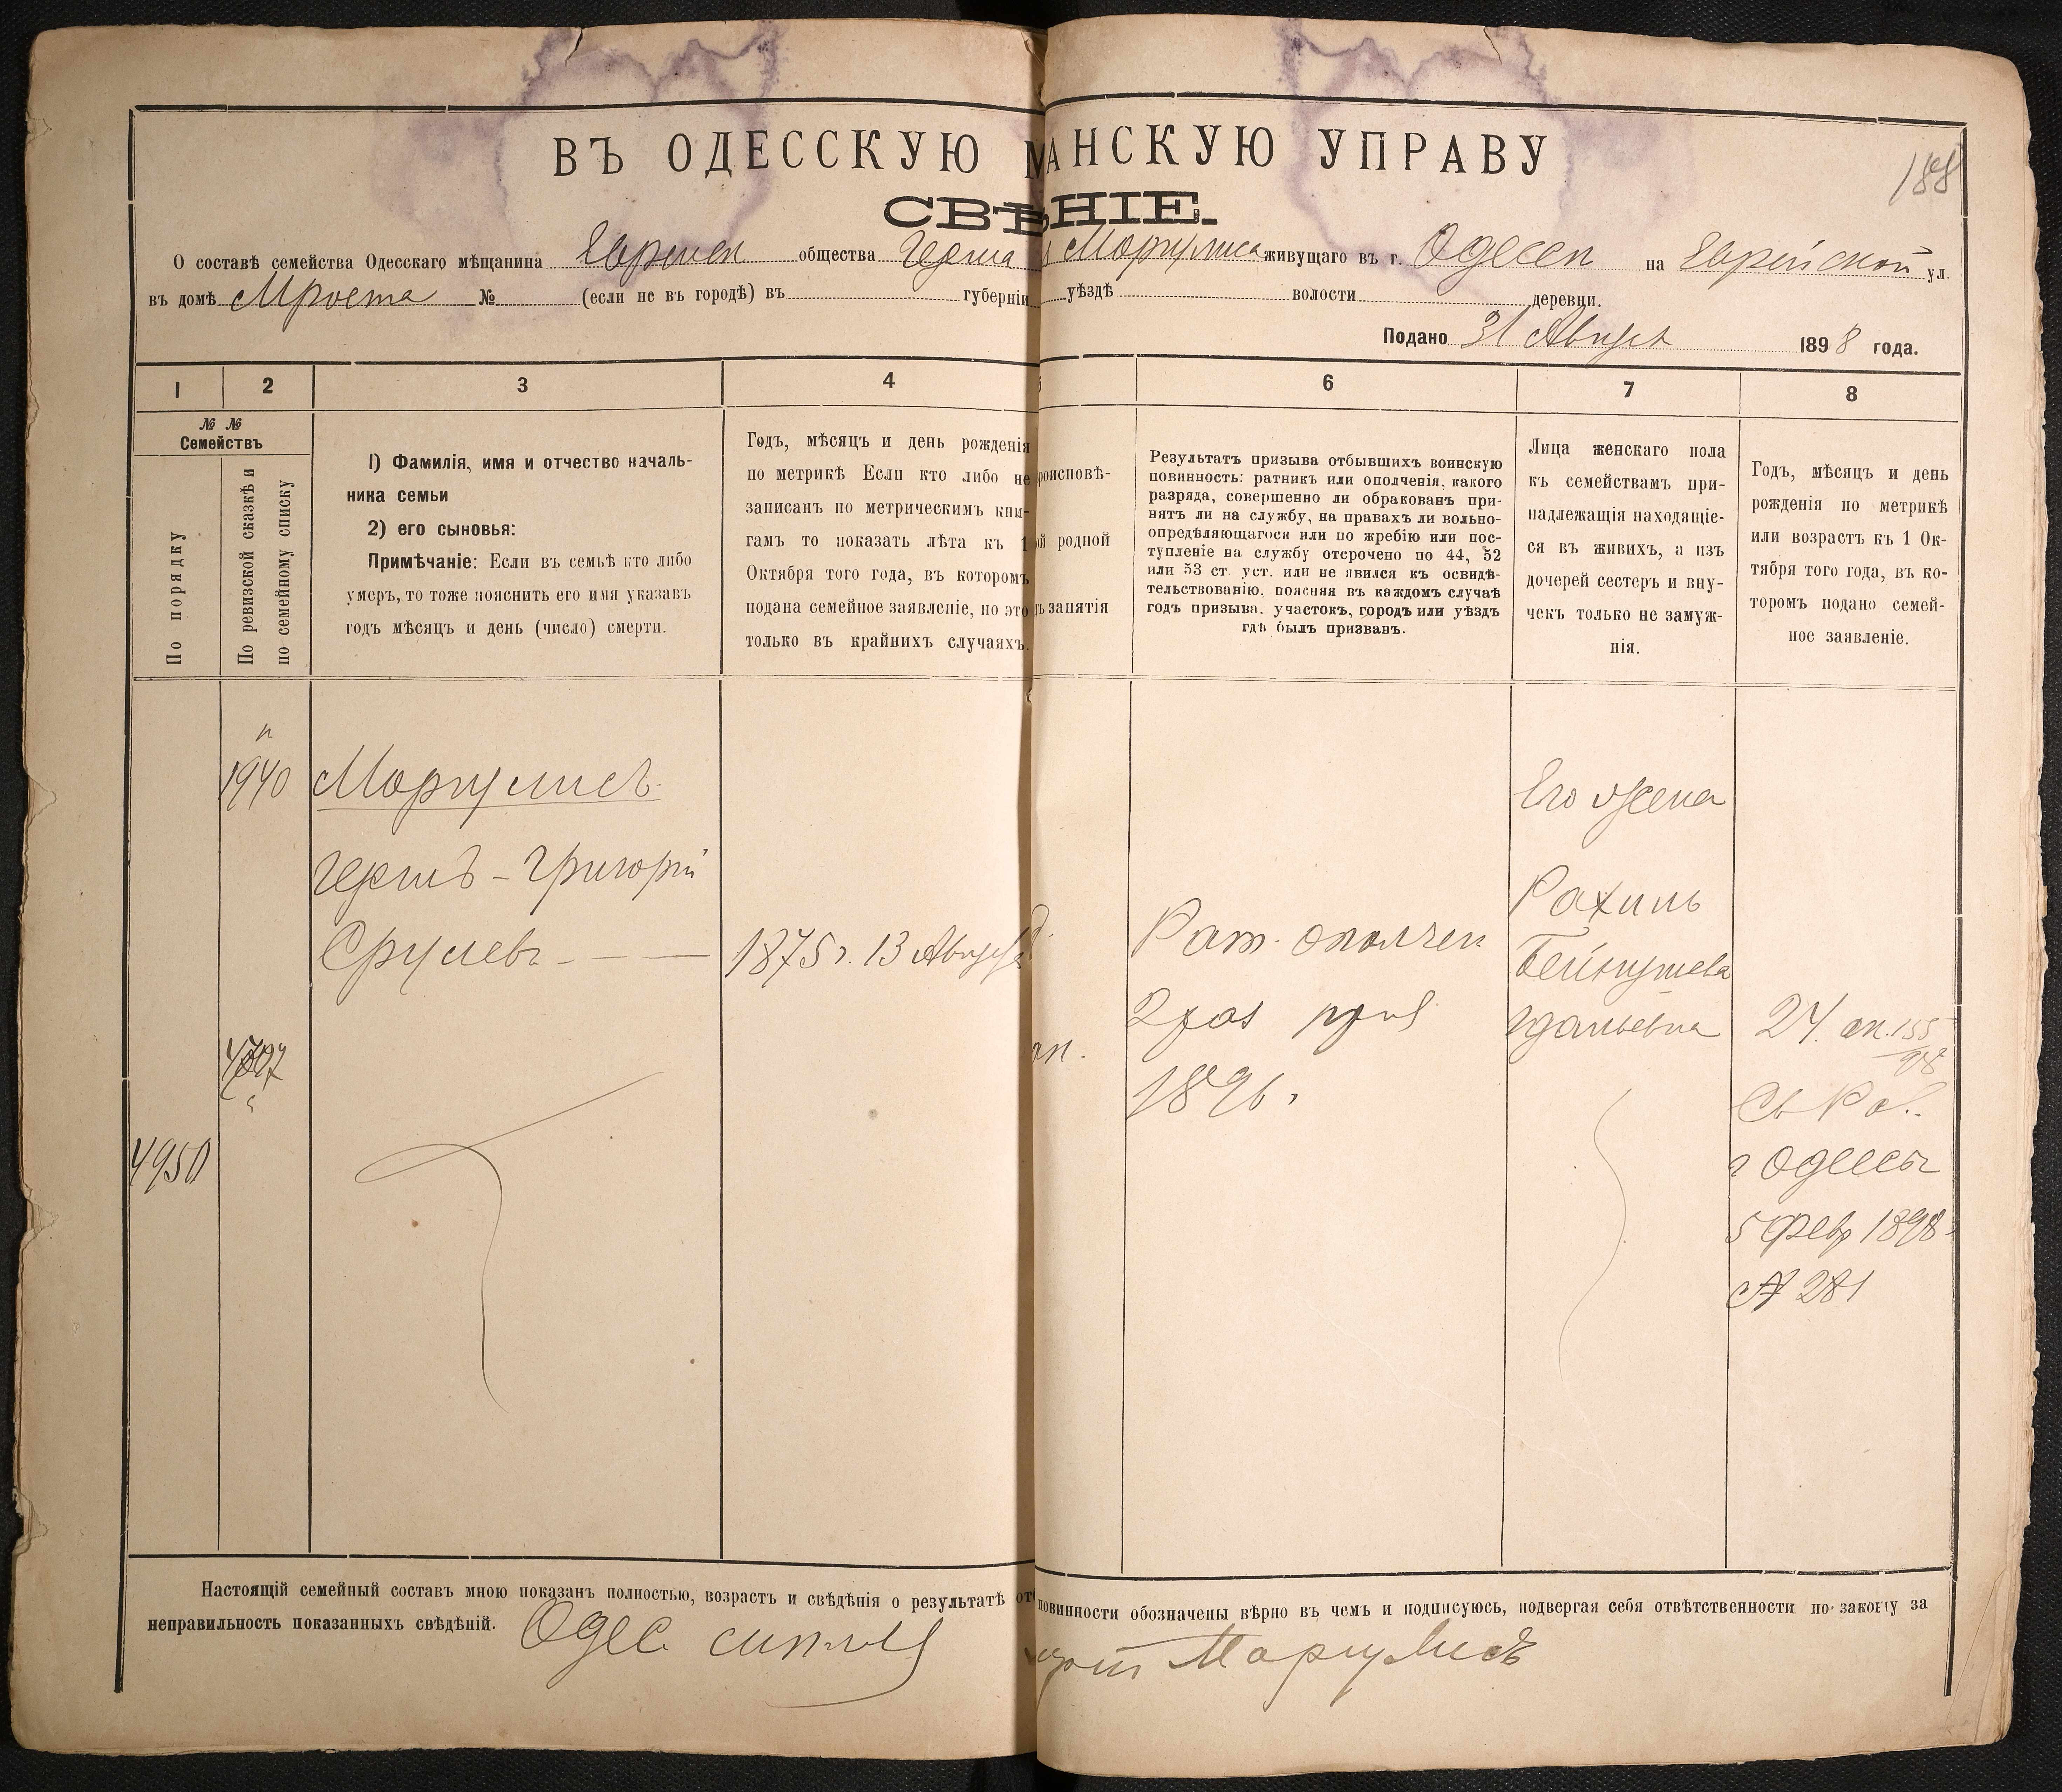 188
ВЪ ОДЕССКУЮ МАНСКУЮ УПРАВУ
СВѢНІЕ.
О составѣ семейства Одесскаго мѣщанина Еврейск общества Герша Моргулиса живущаго въ г. Одессѣ на Еврейской ул.
въ домѣ № (если не въ городѣ) въ губерніи уѣздѣ волости деревни.
Подано 31 Август 1898 года.
1 2 3 4 5 6 7 8
№ №
Семействъ
По порядку
По ревизской сказкѣ и
по семейному списку
1) Фамилія, имя и отчество началь-
ника семьи
2) его сыновья:
Примѣчаніе: Если въ семьѣ кто либо
умеръ, то тоже пояснить его имя указавъ
годъ мѣсяцъ и день (число) смерти.
Годъ, мѣсяцъ и день рожденія
по метрикѣ Если кто либо не
записанъ по метрическимъ кни-
гамъ то показать лѣта къ 1
Октября того года, въ которомъ
подана семейное заявленіе, но это
только въ крайнихъ случаяхъ.
роисповѣ-
ой родной
занятія
Результатъ призыва отбывшихъ воинскую
повинность: ратникъ или ополченія, какого
разряда, совершенно ли обракованъ при-
нятъ ли на службу, на правахъ ли вольно-
опредѣляющагося или по жребію или пос-
тупленіе на службу отсрочено по 44, 52
или 53 ст уст. или не явился къ освидѣ-
тельствованію, поясняя въ каждомъ случаѣ
годъ призыва, участокъ, городъ или уѣздъ
гдѣ былъ призванъ.
Лица женскаго пола
къ семействамъ при-
надлежащія находящіе-
ся въ живихъ, а изъ
дочерей сестеръ и вну-
чекъ только не замуж-
нія.
Годъ, мѣсяцъ и день
рожденія по метрикѣ
или возрастъ къ 1 Ок-
тября того года, въ ко-
торомъ подано семей-
ное заявленіе.
1940 Моргулисъ
Его жена
Гершъ - Григорій
Рахиль
Срулевъ - — — 1875 г. 13 Августа
Рат. ополчен
Бейнушева
2 раз приз
Идальевна
24 ап. 155/98
1896.
Св Раб.
4950
г Одессы
5 Февр 1898 г
№ 281
Настоящій семейный составъ мною показанъ полностью, возрастъ и свѣдѣнія о результатѣ от повинности обозначены вѣрно въ чемъ и подписуюсь, подвергая себя отвѣтственности по закону за
неправильность показанныхъ свѣдѣній.
Одес Маргулисъ